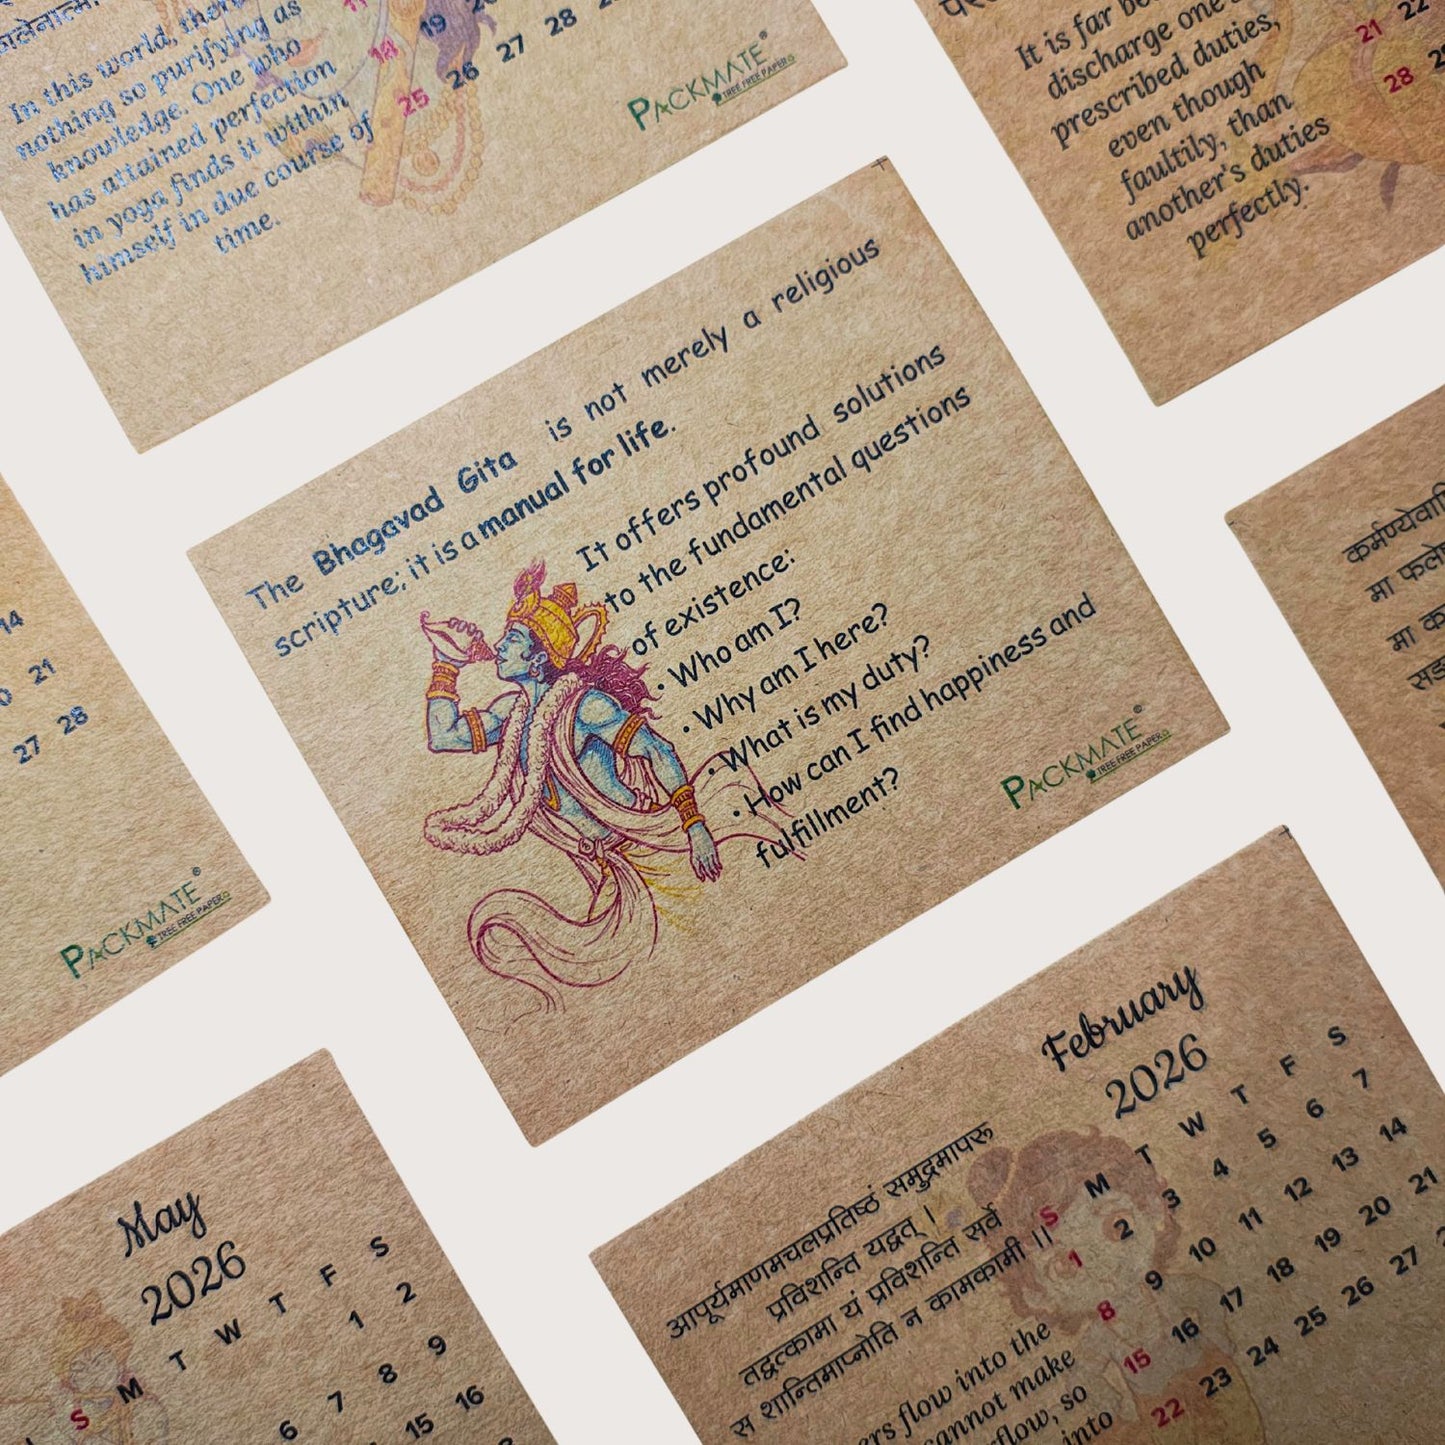 In this world, there
nothing so purifying as
knowledge. One who
has attained perfection
in yoga finds it within
himself in due course of
time.
18 19
25 26 27 28
PACKMATE®
TREE FREE PAPER
It is far
discharge one's
prescribed duties,
even though
faultily, than
another's duties
perfectly.
21 22
28
The Bhagavad Gita is not merely a religious
scripture; it is a manual for life.
It offers profound solutions
to the fundamental questions
of existence:
• Who am I?
• Why am I here?
• What is my duty?
• How can I find happiness and
fulfillment?
PACKMATE®
TREE FREE PAPER
14
21
27 28
PACKMATE®
TREE FREE PAPER
मा
मा
May
2026
S M T W T F S
1 2
6 7 8 9
15 16
February
2026
S M T W T F S
1 2 3 4 5 6 7
8 9 10 11 12 13 14
15 16 17 18 19 20 21
22 23 24 25 26 27
आपूर्यमाणमचलप्रतिष्ठं समुद्रमापरू
प्रविशन्ति यद्वत् ।
तद्वत्कामा यं प्रविशन्ति सर्वे
स शान्तिमाप्नोति न कामकामी ।।
flow into the
cannot make
flow, so
into